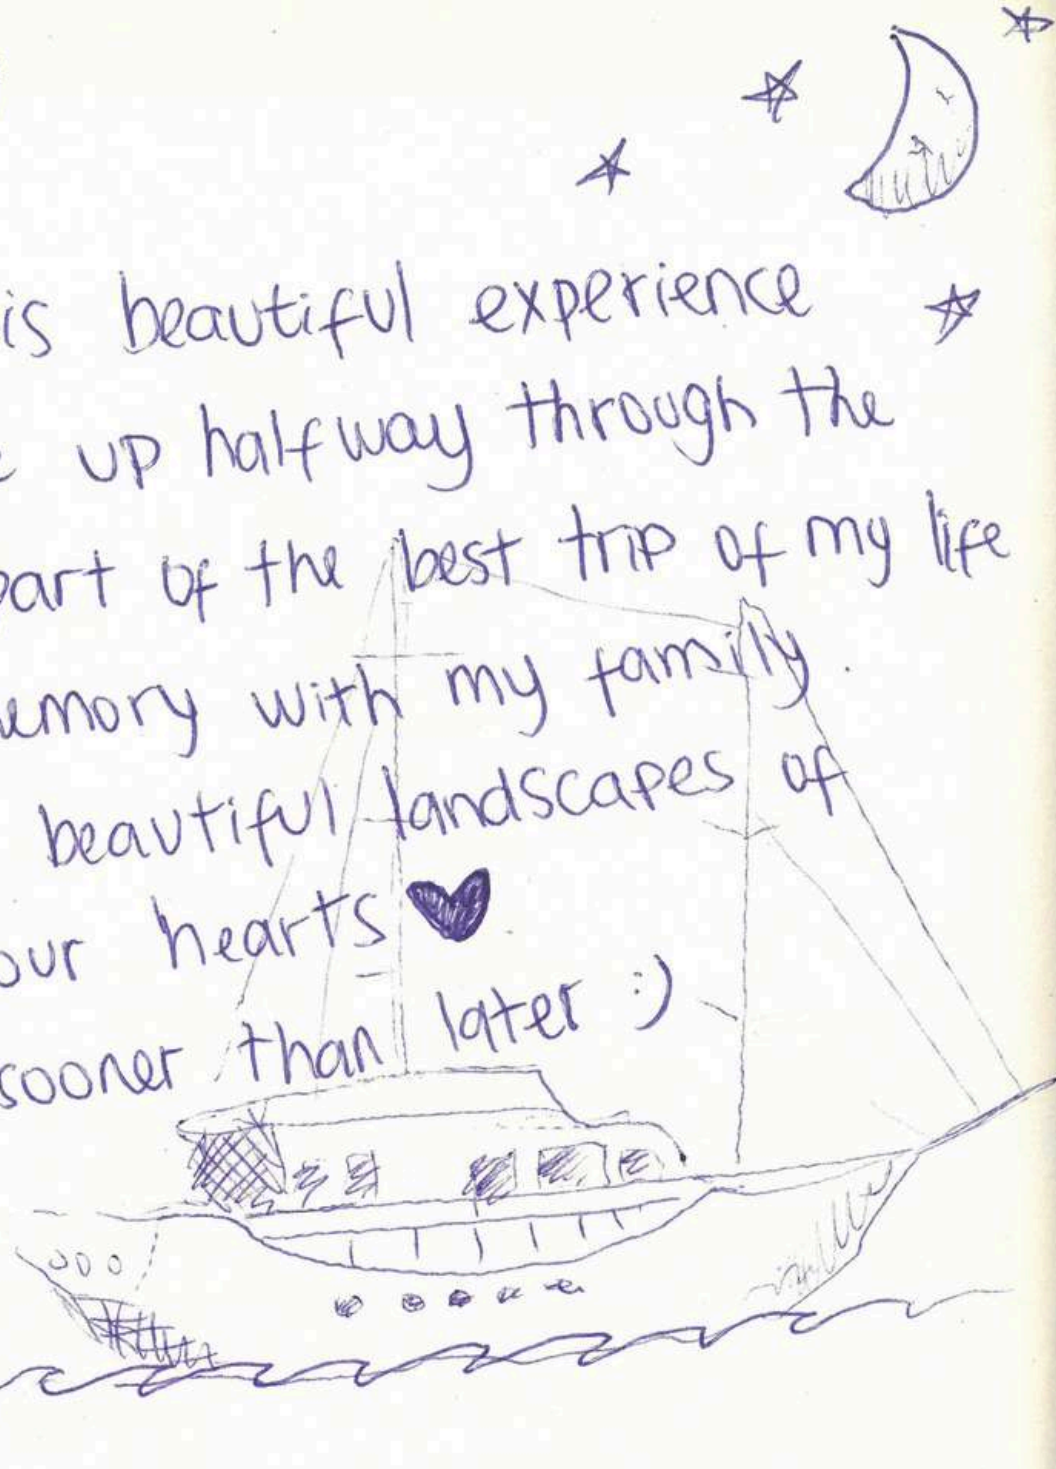 is beautiful experience
up halfway through the
part of the best trip of my life
memory with my family.
beautiful landscapes of
our hearts
sooner than later :)